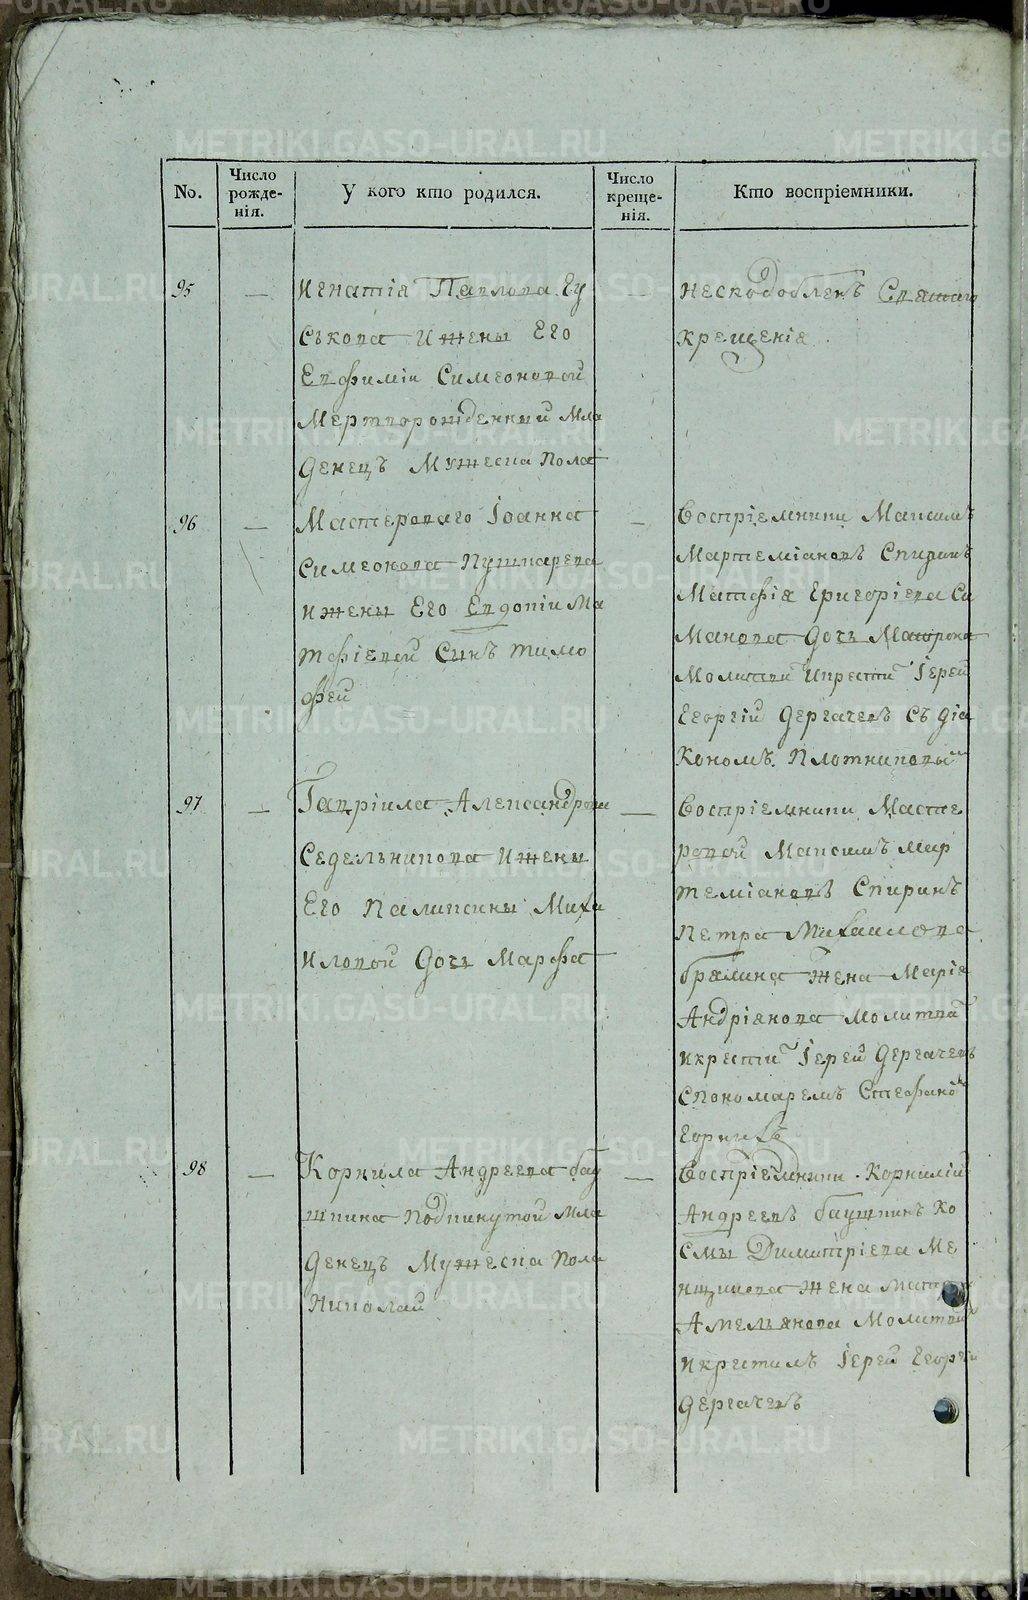 METRIKI.GASO-URAL.RU
No.
Число рожде-нія.
У кого кто родился.
Число креще-нія.
Кто воспріемники.
95
—
Игнатія Павлова Гу
ськова и жены Его
Евфиміи Симеоновой
Мертворожденный Мла
денецъ Мужеска пола
—
несподобленъ Святаго
крещенія.
96
—
Мастероваго Іоанна
Симеонова Пушкарева
и жены Его Евдокіи Ма
тфіевой Сынъ Тимо
фей
—
Воспріемники Максимъ
Мартеміановъ Спиринъ
Матфія Григоріева Си
манова дочь
Молитвил и крестил Іерей
Георгій Дергачевъ съ діа
кономъ Плотниковым
97
—
Гавріила Александрова
Седельникова и жены
Его Палаксины Миха
иловой дочь Марфа
—
Воспріемники Масте
ровой Максимъ Мар
теміановъ Спиринъ
Петра Михаилова
жена Марія
Андріянова молитвил
и крестил Іерей Дергачевъ
с пономаремъ Стефаном
98
—
Корнила Андреева Бау
шкина Подкинутой мла
денецъ Мужеска пола
Николай
—
Воспріемники Корнилій
Андреевъ Баушкинъ Ко
смы Димитріева Ме
ншикова жена
Амельянова Молитвил
и крестилъ Іерей Георгій
Дергачевъ